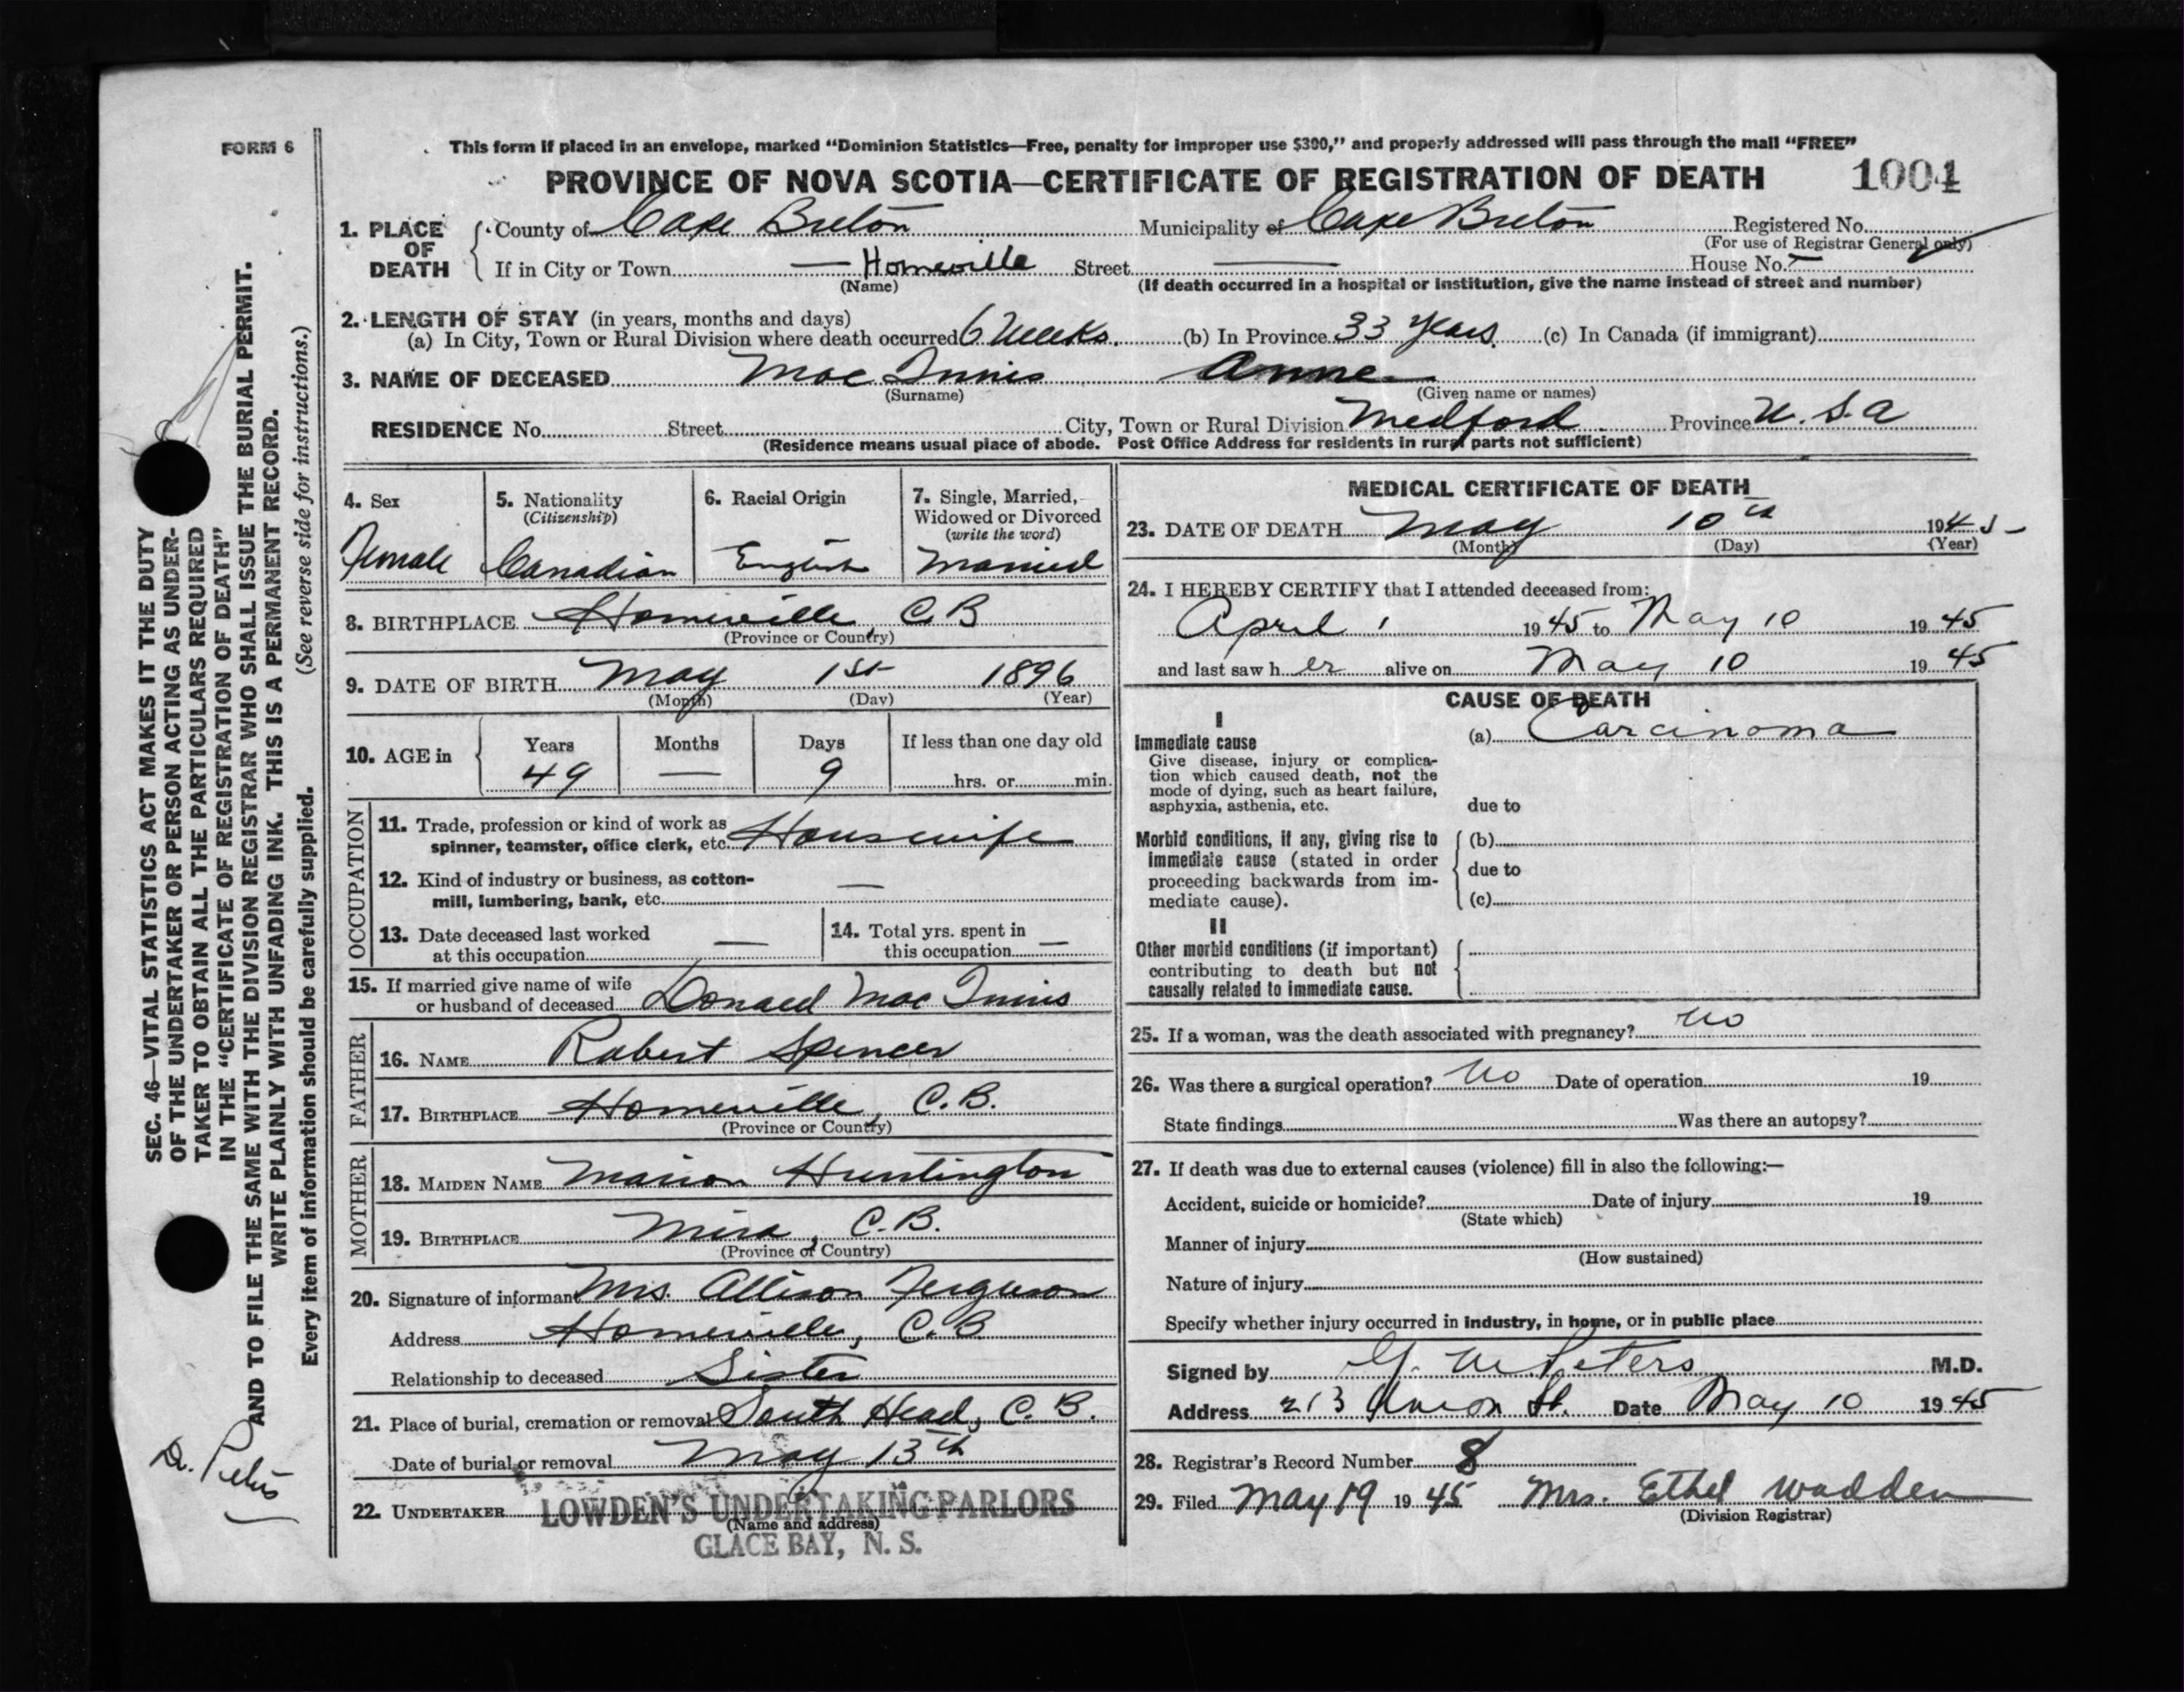 FORM 6
This form if placed in an envelope, marked "Dominion Statistics—Free, penalty for improper use $300," and properly addressed will pass through the mail "FREE"
PROVINCE OF NOVA SCOTIA—CERTIFICATE OF REGISTRATION OF DEATH 1004
1. PLACE OF DEATH
County of Cape Breton Municipality of Cape Breton Registered No.
(For use of Registrar General only)
If in City or Town — Homeville Street — House No. —
(Name) (If death occurred in a hospital or institution, give the name instead of street and number)
2. LENGTH OF STAY (in years, months and days)
(a) In City, Town or Rural Division where death occurred 6 Weeks. (b) In Province 33 Years. (c) In Canada (if immigrant)
3. NAME OF DECEASED Mac Innis Anne
(Surname) (Given name or names)
RESIDENCE No. Street City, Town or Rural Division Medford Province U. S. A
(Residence means usual place of abode. Post Office Address for residents in rural parts not sufficient)
4. Sex
Female
5. Nationality
(Citizenship)
Canadian
6. Racial Origin
English
7. Single, Married,
Widowed or Divorced
(write the word)
Married
8. BIRTHPLACE Homeville, C. B
(Province or Country)
9. DATE OF BIRTH May 1st 1896
(Month) (Day) (Year)
10. AGE in
Years Months Days If less than one day old
49 — 9 hrs. or min.
OCCUPATION
11. Trade, profession or kind of work as
spinner, teamster, office clerk, etc. Housewife
12. Kind of industry or business, as cotton-
mill, lumbering, bank, etc. —
13. Date deceased last worked
at this occupation —
14. Total yrs. spent in
this occupation —
15. If married give name of wife
or husband of deceased Donald Mac Innis
FATHER
16. NAME Robert Spencer
17. BIRTHPLACE Homeville, C. B.
(Province or Country)
MOTHER
18. MAIDEN NAME Marion Huntington
19. BIRTHPLACE Mira, C. B.
(Province or Country)
20. Signature of informant Mrs. Allison Ferguson
Address Homeville, C. B
Relationship to deceased Sister
21. Place of burial, cremation or removal South Head, C. B.
Date of burial or removal May 13th
22. UNDERTAKER LOWDEN'S UNDERTAKING PARLORS
(Name and address)
GLACE BAY, N. S.
MEDICAL CERTIFICATE OF DEATH
23. DATE OF DEATH May 10th 1945
(Month) (Day) (Year)
24. I HEREBY CERTIFY that I attended deceased from:
April 1 1945 to May 10 1945
and last saw her alive on May 10 1945
CAUSE OF DEATH
I
Immediate cause
Give disease, injury or complica-
tion which caused death, not the
mode of dying, such as heart failure,
asphyxia, asthenia, etc.
(a) Carcinoma
due to
Morbid conditions, if any, giving rise to
immediate cause (stated in order
proceeding backwards from im-
mediate cause).
(b)
due to
(c)
II
Other morbid conditions (if important)
contributing to death but not
causally related to immediate cause.
25. If a woman, was the death associated with pregnancy? no
26. Was there a surgical operation? no Date of operation 19
State findings Was there an autopsy?
27. If death was due to external causes (violence) fill in also the following:—
Accident, suicide or homicide? Date of injury 19
(State which)
Manner of injury
(How sustained)
Nature of injury
Specify whether injury occurred in industry, in home, or in public place
Signed by Peters M.D.
Address 213 Union St. Date May 10 1945
28. Registrar's Record Number 8
29. Filed May 19 1945 Mrs. Ethel Wadden
(Division Registrar)
SEC. 46—VITAL STATISTICS ACT MAKES IT THE DUTY
OF THE UNDERTAKER OR PERSON ACTING AS UNDER-
TAKER TO OBTAIN ALL THE PARTICULARS REQUIRED
IN THE "CERTIFICATE OF REGISTRATION OF DEATH"
AND TO FILE THE SAME WITH THE DIVISION REGISTRAR WHO SHALL ISSUE THE BURIAL PERMIT.
WRITE PLAINLY WITH UNFADING INK. THIS IS A PERMANENT RECORD.
Every item of information should be carefully supplied. (See reverse side for instructions.)
Dr. Peters